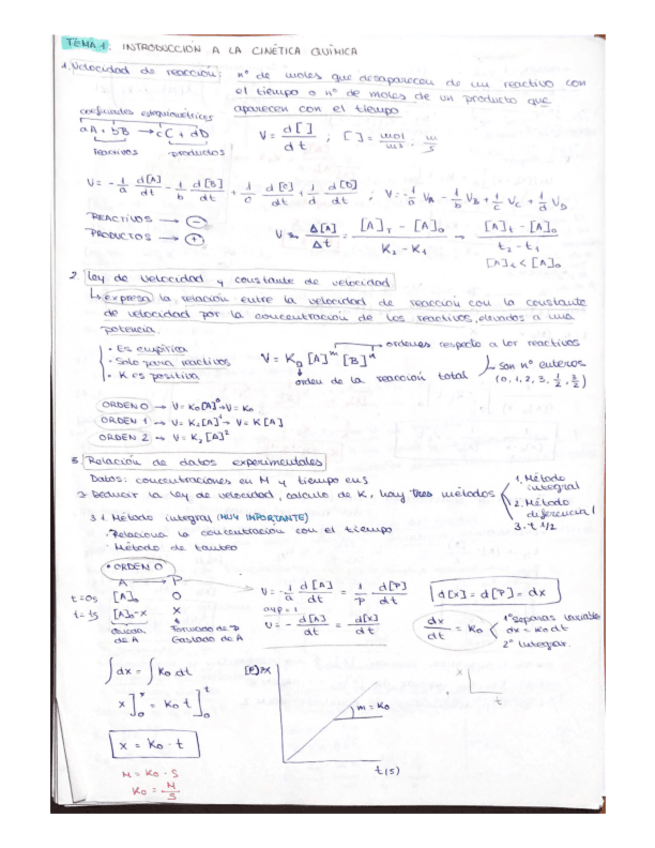 TEMA 1: INTRODUCCIÓN A LA CINÉTICA QUÍMICA
1. Velocidad de reacción: nº de moles que desaparecen de un reactivo con
el tiempo o nº de moles de un producto que
aparecen con el tiempo
coeficientes estequiométricos
aA + bB → cC + dD
reactivos productos
V = d[ ] / dt ; [ ] = mol / ; M / S
V = - 1/a d[A]/dt - 1/b d[B]/dt + 1/c d[C]/dt + 1/d d[D]/dt ; V = - 1/a VA - 1/b VB + 1/c VC + 1/d VD
REACTIVOS → -
PRODUCTOS → +
Δ[A] / Δt = [A]T - [A]0 / K2 - K1 → [A]t - [A]0 / t2 - t1
[A]t < [A]0
2. Ley de velocidad y constante de velocidad
↳ expresa la relación entre la velocidad de reacción con la constante
de velocidad por la concentración de los reactivos, elevados a una
potencia.
· Es empírica
· Solo para reactivos
· K es positiva
V = Kn [A]^m [B]^n
→ ordenes respecto a los reactivos
↳ son nº enteros
(0, 1, 2, 3, 1/2, 3/2)
orden de la reacción total
ORDEN 0 → V = K0[A]^0 → V = K0
ORDEN 1 → V = K1[A]^1 → V = K[A]
ORDEN 2 → V = K2[A]^2
3. Relación de datos experimentales
Datos: concentraciones en M y tiempo en s
Deducir la ley de velocidad, calculo de K, hay tres métodos
1. Método integral
2. Método diferencial
3. t 1/2
3.1. Método integral (MUY IMPORTANTE)
· Relaciona la concentración con el tiempo
· Método de tanteo
· ORDEN 0
A → P
t=0s [A]0 0
t=ts [A]0-x x
queda de A
Formado de P
Gastado de A
V = - 1/a d[A]/dt = 1/p d[P]/dt
a y p = 1
V = - d[A]/dt = d[x]/dt
d[x] = d[P] = dx
dx/dt = K0
1º separas variables
dx = K0dt
2º Integrar.
∫dx = ∫K0 dt
x]0^x = K0 t]0^t
x = K0 · t
M = K0 · S
K0 = M/S
[P]=X
m = K0
t(s)
x
t